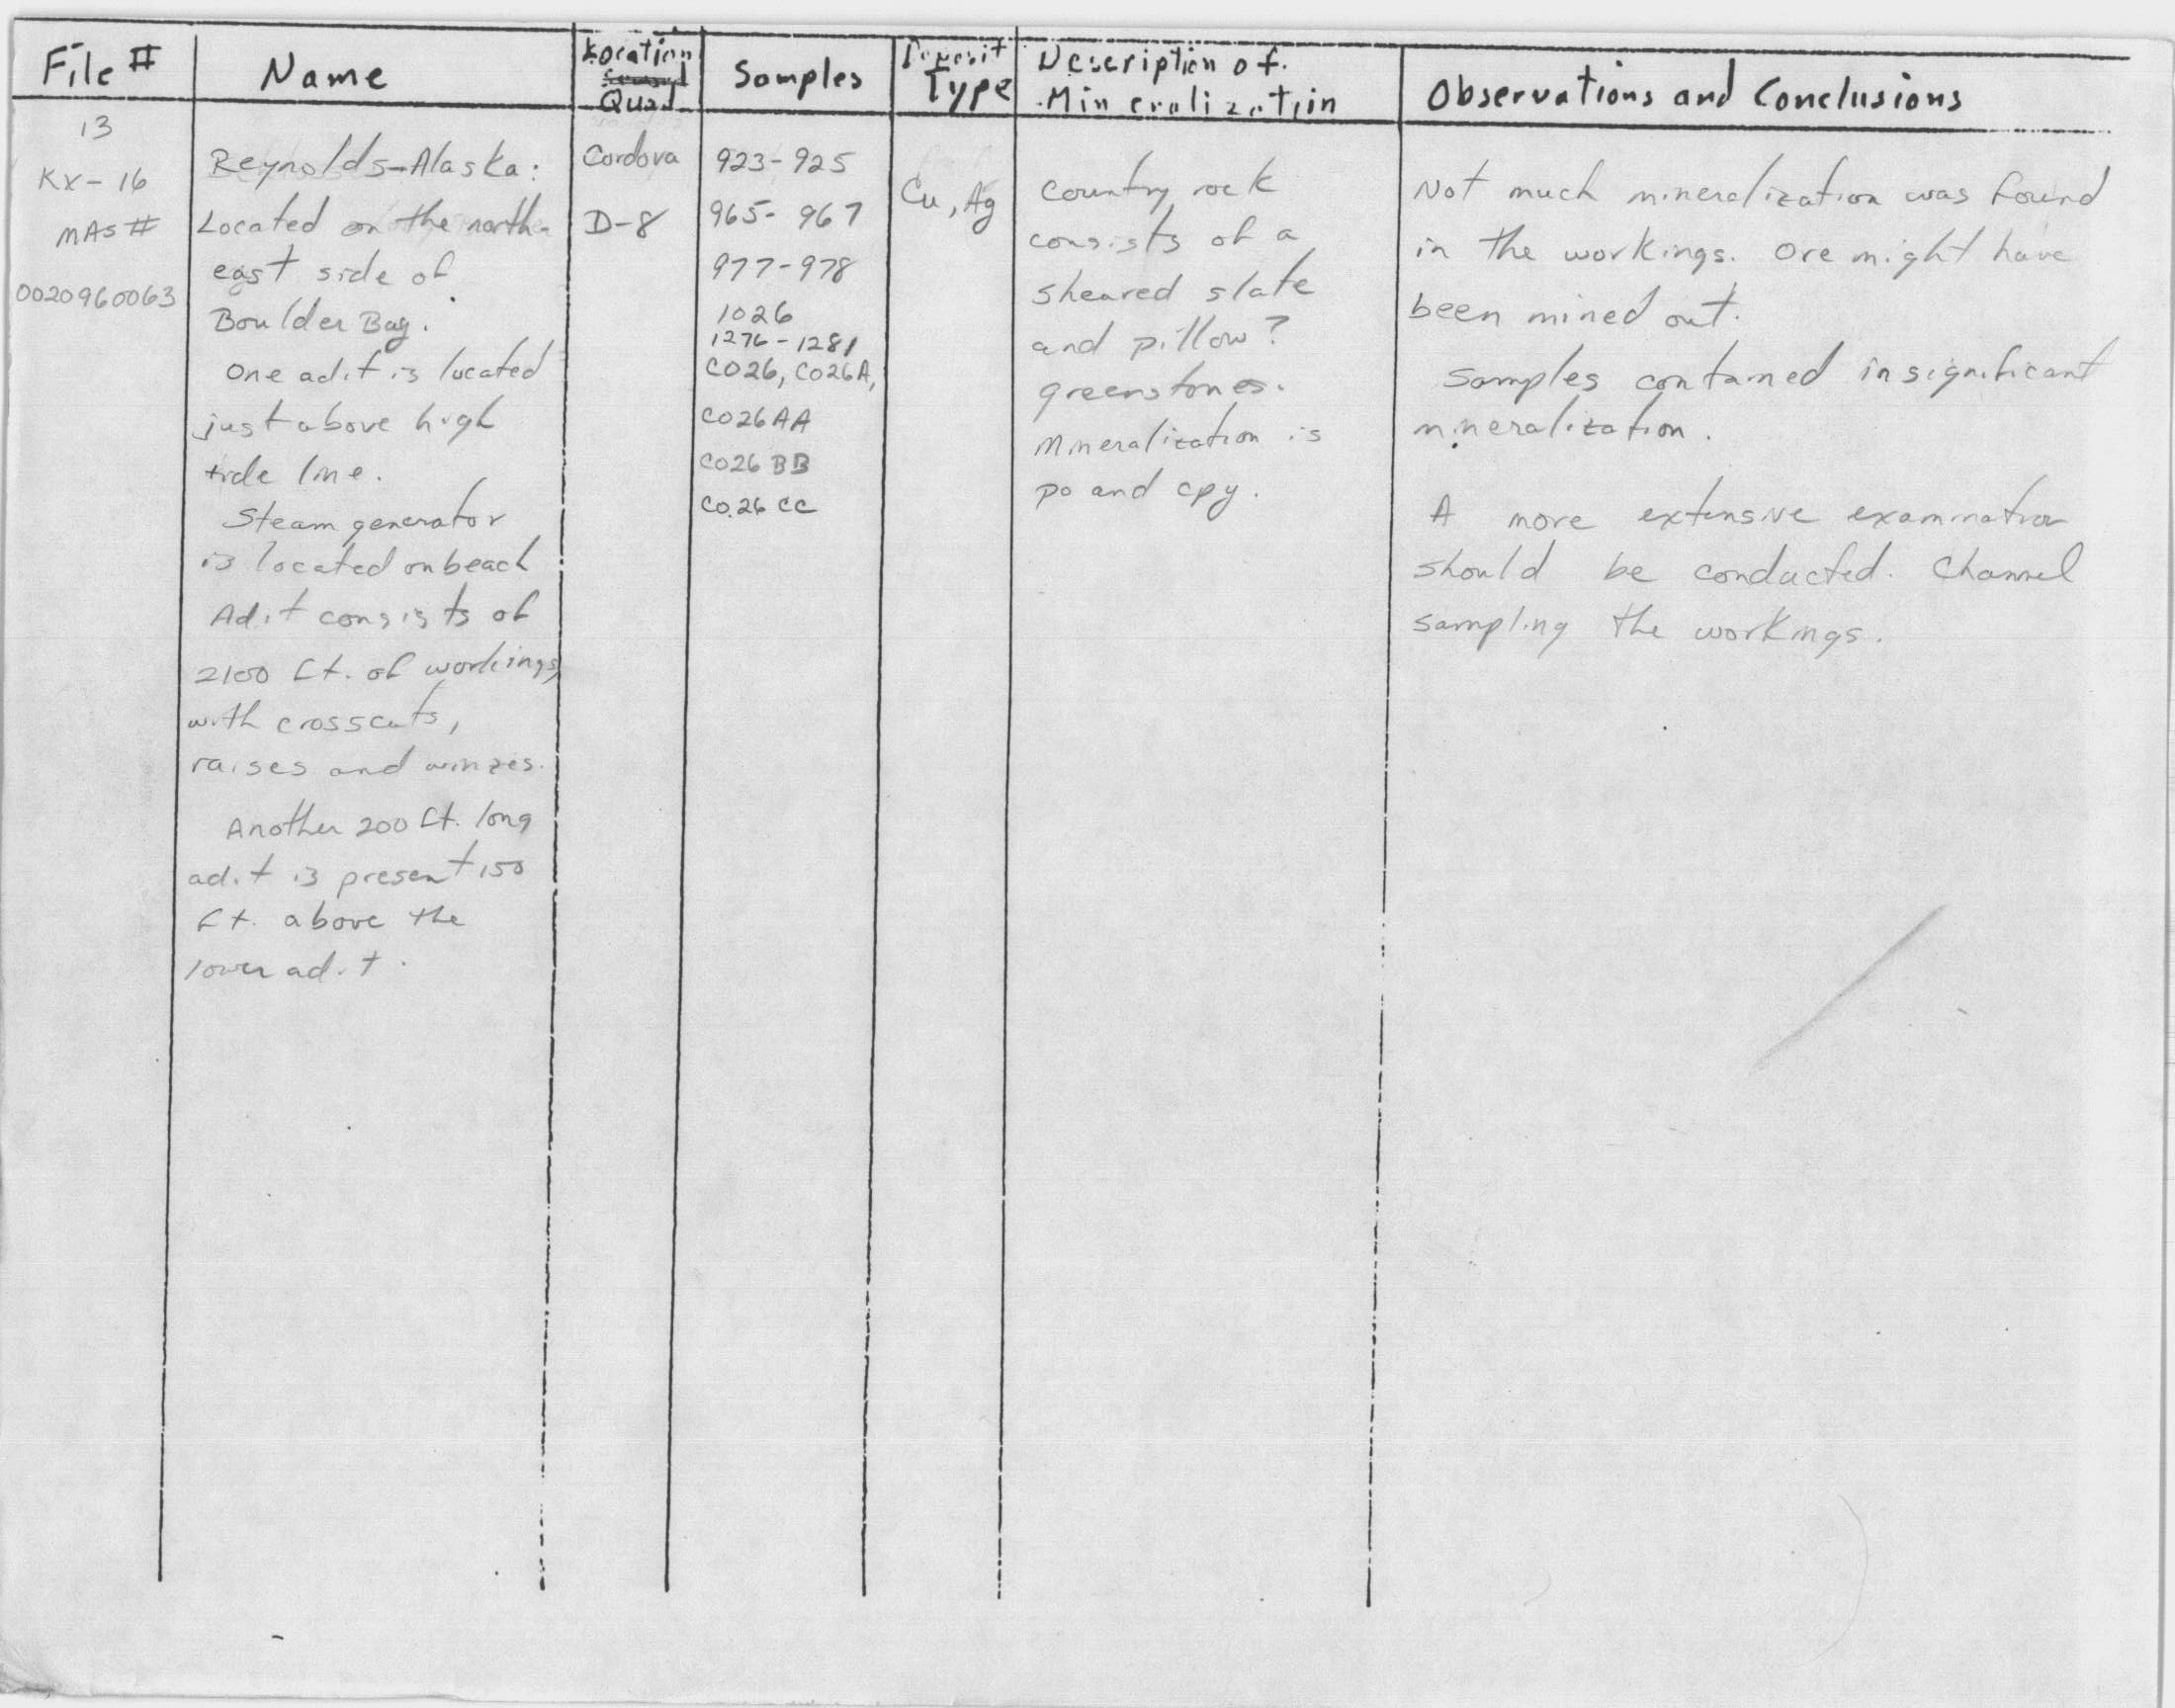 File # Name Location Quad Samples Deposit Type Description of Mineralization Observations and Conclusions
13
KX-16
MAS #
0020960063
Reynolds-Alaska:
Located on the north-
east side of
Boulder Bay.
One adit is located
just above high
tide line.
Steam generator
is located on beach
Adit consists of
2100 ft. of workings,
with crosscuts,
raises and winzes.
Another 200 ft. long
adit is present 150
ft. above the
lower adit.
Cordova
D-8
923-925
965-967
977-978
1026
1276-1281
C026, C026A,
C026AA
C026BB
C026CC
Cu, Ag
Country rock
consists of a
sheared slate
and pillow?
greenstones.
Mineralization is
po and cpy.
Not much mineralization was found
in the workings. Ore might have
been mined out.
Samples contained insignificant
mineralization.
A more extensive examination
should be conducted. Channel
sampling the workings.